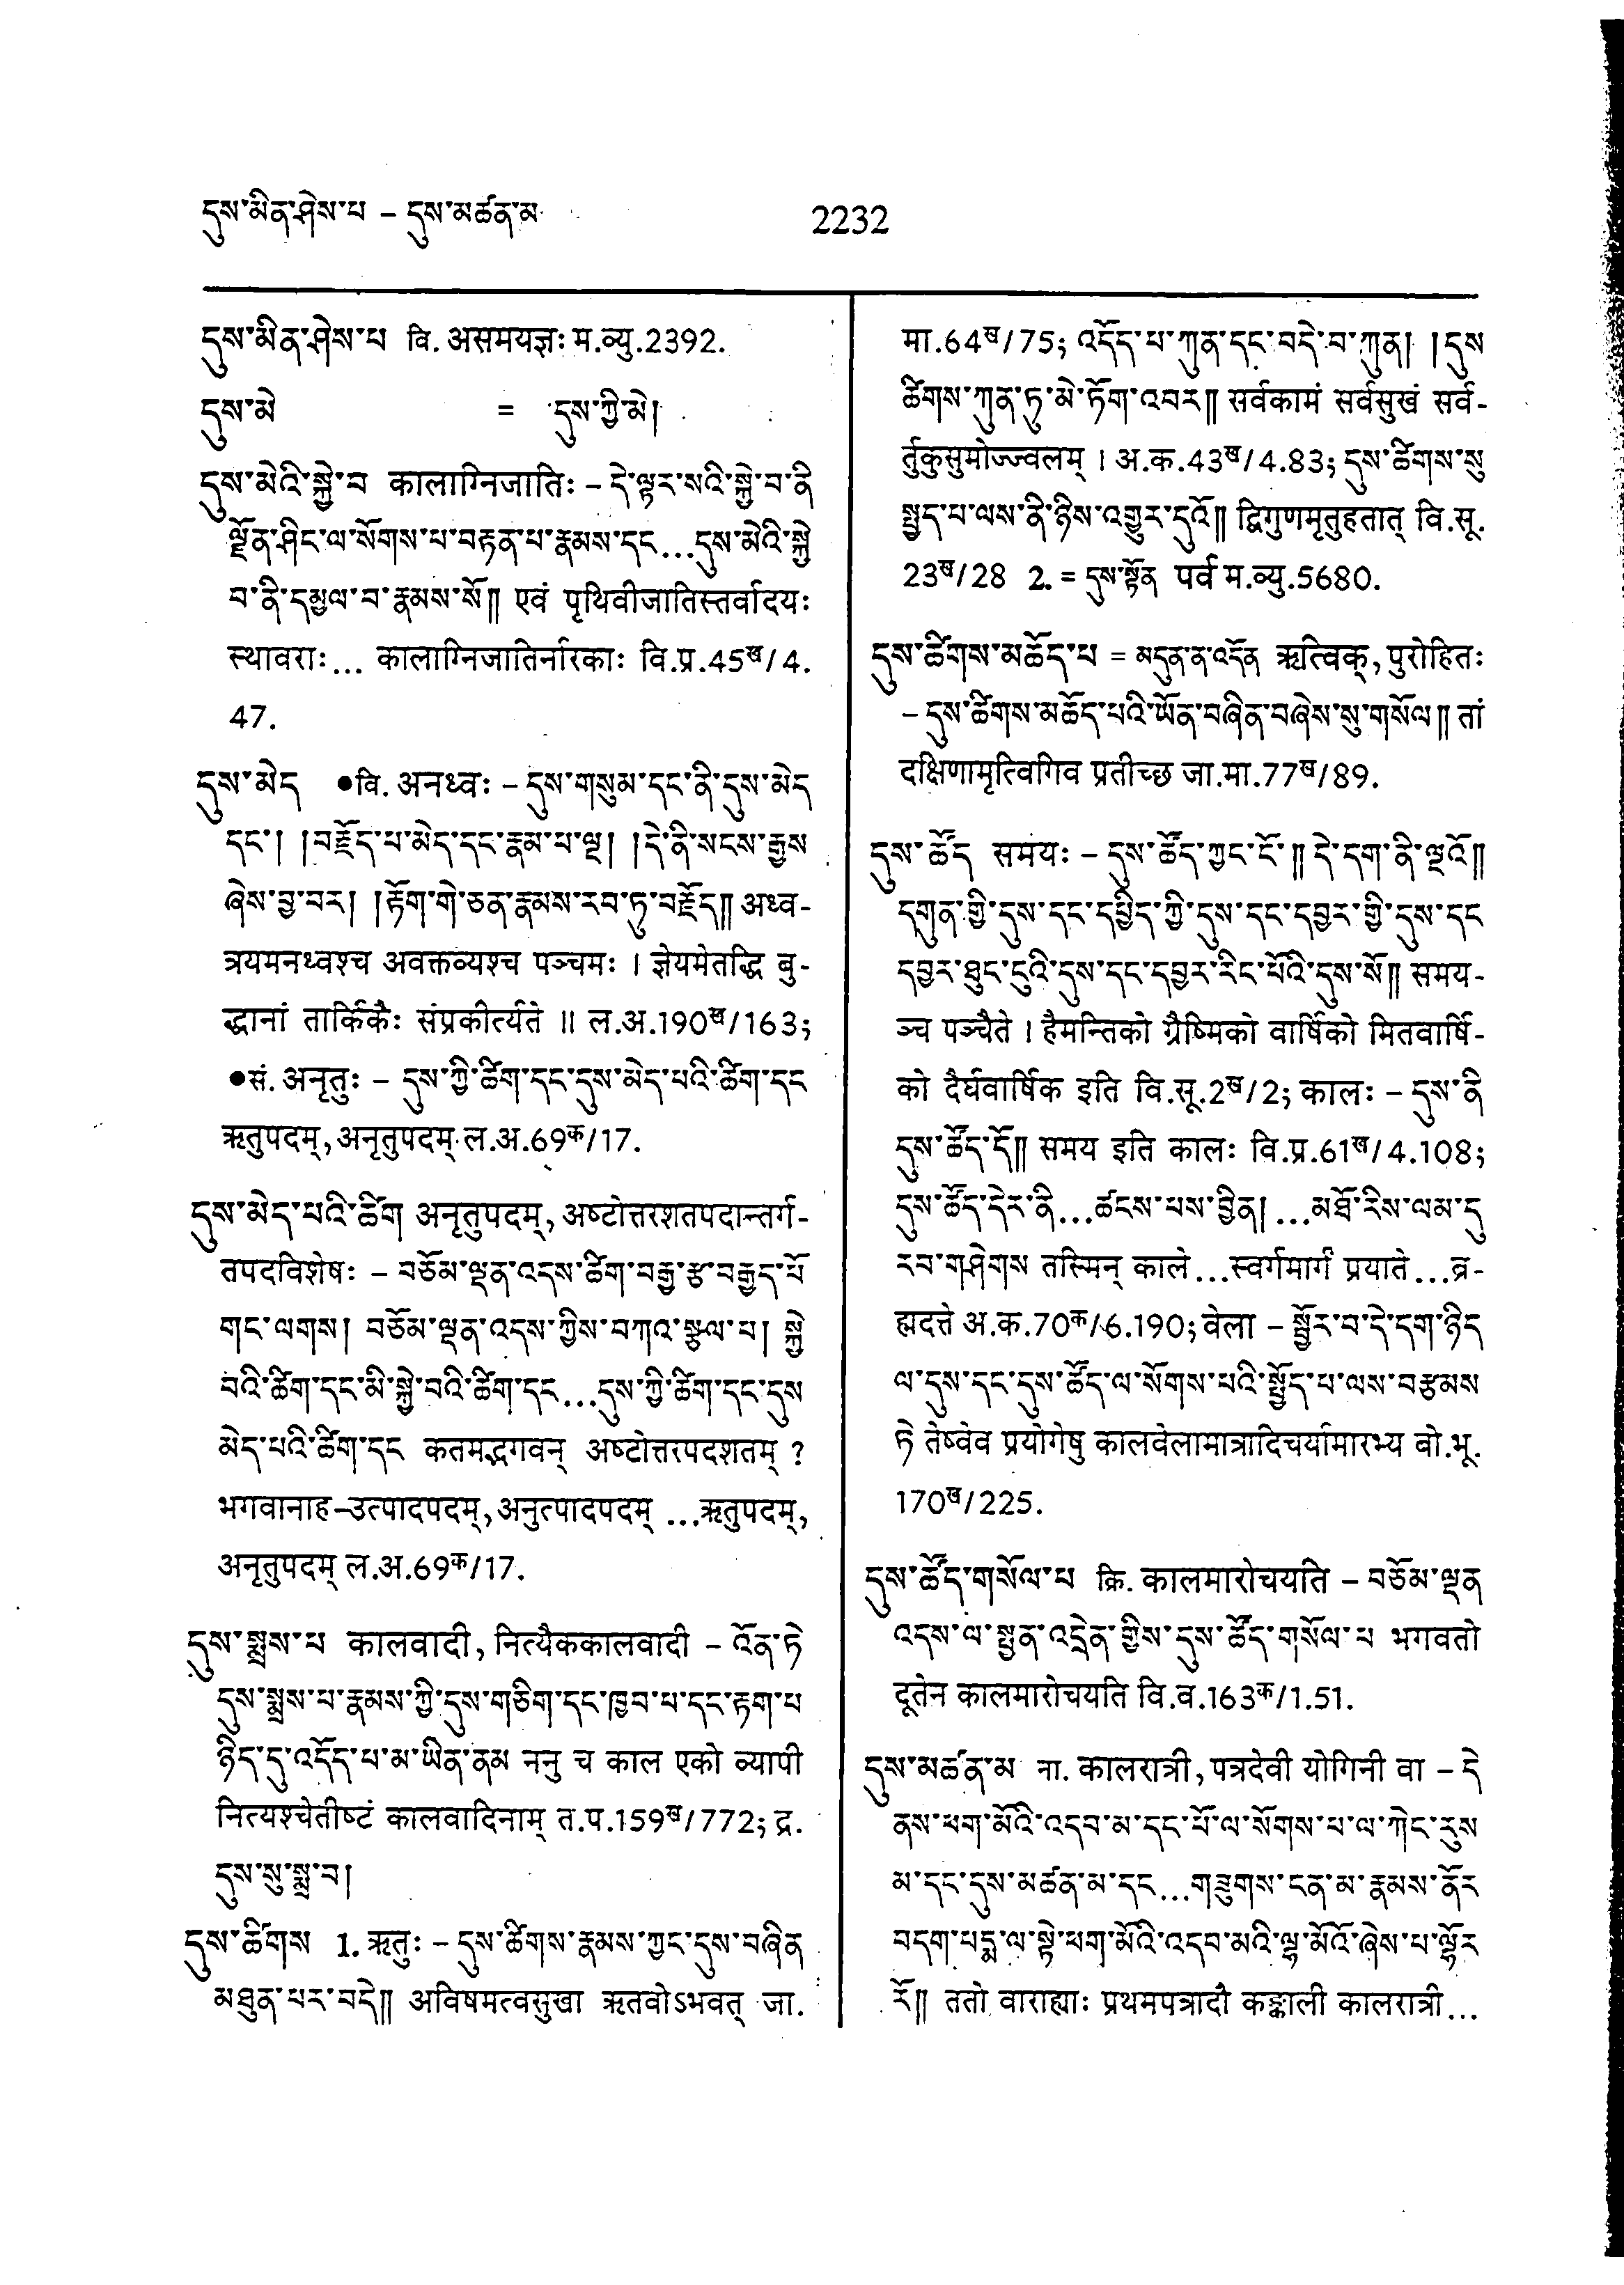 དུས་མིན་ཤེས་པ – དུས་མཚན་མ
2232
དུས་མིན་ཤེས་པ वि. असमयज्ञः म.व्यु.2392.
དུས་མེ = དུས་ཀྱི་མེ།
དུས་མེའི་སྐྱེ་བ कालाग्निजातिः – དེ་ལྟར་སའི་སྐྱེ་བ་ནི
ལྗོན་ཤིང་ལ་སོགས་པ་བརྟན་པ་རྣམས་དང...དུས་མེའི་སྐྱེ
བ་ནི་དམྱལ་བ་རྣམས་སོ༎ एवं पृथिवीजातिस्तर्वादयः
स्थावराः... कालाग्निजातिर्नारकाः वि.प्र.45ख/4.
47.
དུས་མེད ●वि. अनध्वः – དུས་གསུམ་དང་ནི་དུས་མེད
དང་། །བརྗོད་པ་མེད་དང་རྣམ་པ་ལྔ། །དེ་ནི་སངས་རྒྱས
ཞེས་བྱ་བར། །རྟོག་གེ་ཅན་རྣམས་རབ་ཏུ་བརྗོད༎ अध्व-
त्रयमनध्वश्च अवक्तव्यश्च पञ्चमः । ज्ञेयमेतद्धि बु-
द्धानां तार्किकैः संप्रकीर्त्यते ॥ ल.अ.190ख/163;
●सं. अनृतुः – དུས་ཀྱི་ཚིག་དང་དུས་མེད་པའི་ཚིག་དང
ऋतुपदम्, अनृतुपदम् ल.अ.69क/17.
དུས་མེད་པའི་ཚིག अनृतुपदम्, अष्टोत्तरशतपदान्तर्ग-
तपदविशेषः – བཅོམ་ལྡན་འདས་ཚིག་བརྒྱ་རྩ་བརྒྱད་པོ
གང་ལགས། བཅོམ་ལྡན་འདས་ཀྱིས་བཀའ་སྩལ་པ། སྐྱེ
བའི་ཚིག་དང་མི་སྐྱེ་བའི་ཚིག་དང...དུས་ཀྱི་ཚིག་དང་དུས
མེད་པའི་ཚིག་དང कतमद्भगवन् अष्टोत्तरपदशतम् ?
भगवानाह–उत्पादपदम्, अनुत्पादपदम् ...ऋतुपदम्,
अनृतुपदम् ल.अ.69क/17.
དུས་སྨྲས་པ कालवादी, नित्यैककालवादी – འོན་ཏེ
དུས་སྨྲས་པ་རྣམས་ཀྱི་དུས་གཅིག་དང་ཁྱབ་པ་དང་རྟག་པ
ཉིད་དུ་འདོད་པ་མ་ཡིན་ནམ ननु च काल एको व्यापी
नित्यश्चेतीष्टं कालवादिनाम् त.प.159ख/772; द्र.
དུས་སུ་སྨྲ་བ།
དུས་ཚིགས 1. ऋतुः – དུས་ཚིགས་རྣམས་ཀྱང་དུས་བཞིན
མཐུན་པར་བདེ༎ अविषमत्वसुखा ऋतवोऽभवत् जा.
मा.64ख/75; འདོད་པ་ཀུན་དང་བདེ་བ་ཀུན། །དུས
ཚིགས་ཀུན་ཏུ་མེ་ཏོག་འབར༎ सर्वकामं सर्वसुखं सर्व-
र्तुकुसुमोज्ज्वलम् । अ.क.43ख/4.83; དུས་ཚིགས་སུ
སྤྱད་པ་ལས་ནི་ཉིས་འགྱུར་དུའོ༎ द्विगुणमृतुहतात् वि.सू.
23ख/28 2. = དུས་སྟོན पर्व म.व्यु.5680.
དུས་ཚིགས་མཆོད་པ = མདུན་ན་འདོན ऋत्विक्, पुरोहितः
– དུས་ཚིགས་མཆོད་པའི་ཡོན་བཞིན་བཞེས་སུ་གསོལ༎ तां
दक्षिणामृत्विगिव प्रतीच्छ जा.मा.77ख/89.
དུས་ཚོད समयः – དུས་ཚོད་ཀྱང་ངོ་༎ དེ་དག་ནི་ལྔའོ༎
དགུན་གྱི་དུས་དང་དཔྱིད་ཀྱི་དུས་དང་དབྱར་གྱི་དུས་དང
དབྱར་ཐུང་ངུའི་དུས་དང་དབྱར་རིང་པོའི་དུས་སོ༎ समय-
ञ्च पञ्चैते । हैमन्तिको ग्रैष्मिको वार्षिको मितवार्षि-
को दैर्घवार्षिक इति वि.सू.2ख/2; कालः – དུས་ནི
དུས་ཚོད་དོ༎ समय इति कालः वि.प्र.61ख/4.108;
དུས་ཚོད་དེར་ནི...ཚངས་པས་བྱིན། ...མཐོ་རིས་ལམ་དུ
རབ་གཤེགས तस्मिन् काले...स्वर्गमार्गं प्रयाते...ब्र-
ह्मदत्ते अ.क.70क/6.190; वेला – སྦྱོར་བ་དེ་དག་ཉིད
ལ་དུས་དང་དུས་ཚོད་ལ་སོགས་པའི་སྤྱོད་པ་ལས་བརྩམས
ཏེ तेष्वेव प्रयोगेषु कालवेलामात्रादिचर्यामारभ्य बो.भू.
170ख/225.
དུས་ཚོད་གསོལ་པ क्रि. कालमारोचयति – བཅོམ་ལྡན
འདས་ལ་སྤྱན་འདྲེན་གྱིས་དུས་ཚོད་གསོལ་པ भगवतो
दूतेन कालमारोचयति वि.व.163क/1.51.
དུས་མཚན་མ ना. कालरात्री, पत्रदेवी योगिनी वा – དེ
ནས་ཕག་མོའི་འདབ་མ་དང་པོ་ལ་སོགས་པ་ལ་ཀེང་རུས
མ་དང་དུས་མཚན་མ་དང...གཟུགས་ངན་མ་རྣམས་ནོར
བདག་པདྨ་ལ་སྟེ་ཕག་མོའི་འདབ་མའི་ལྷ་མོའོ་ཞེས་པ་ལྷོར
རོ༎ ततो वाराह्याः प्रथमपत्रादौ कङ्काली कालरात्री...